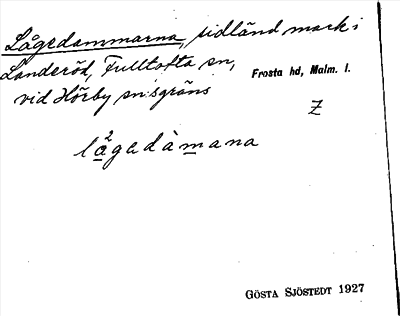 Lågedammarna, sidländ mark i
Landeröd, Fulltofta sn,
Frosta hd, Malm. l.
vid Hörby sn:sgräns
Z
2
lågedàmana
GÖSTA SJÖSTEDT 1927